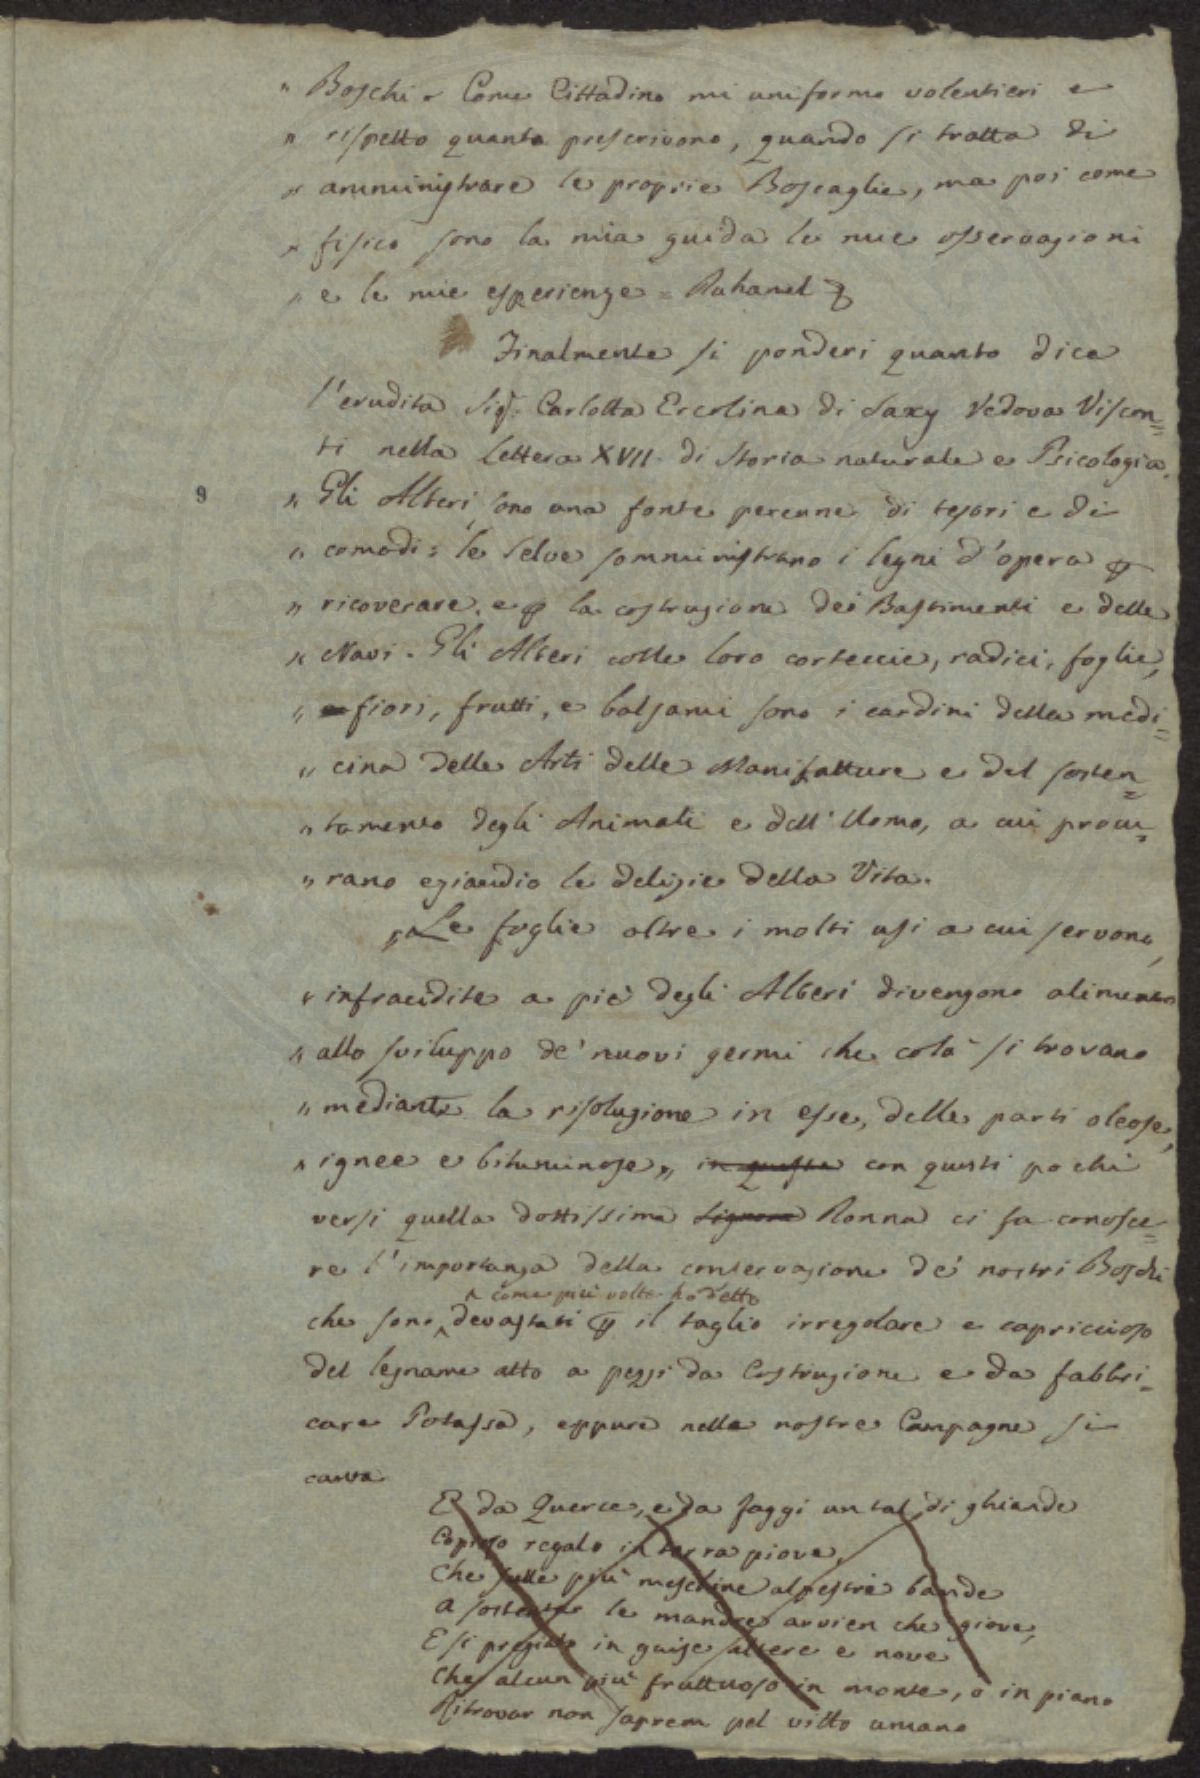 " Boschi. Come Cittadino mi uniformo volentieri e
" rispetto quanto prescrivono, quando si tratta di
" amministrare le proprie Boscaglie, ma poi come
" fisico sono la mia guida le mie osservazioni
" e le mie esperienze = Rahanel
Finalmente si ponderi quanto dice
l'erudita Sigª. Carlotta Ercolina di Saxy Vedova Viscon=
ti nella lettera XVII di Storia naturale e Psicologia.
9 " Gli Alberi sono una fonte perenne di tesori e di
" comodi: le selve somministrano i legni d'opera ꝑ
" ricoverare, e ꝑ la costruzione dei Bastimenti e delle
" Navi. Gli Alberi colle loro corteccie, radici, foglie,
" fiori, frutti, e balsami sono i cardini della medi=
" cina delle Arti delle Manifatture e del sosten=
" tamento degli Animali e dell'Uomo, a cui procu=
" rano eziandio le delizie della Vita.
" Le foglie oltre i molti usi a cui servono,
" infracidite a piè degli Alberi divengono alimento
" allo sviluppo de' nuovi germi che colà si trovano
" mediante la risoluzione in esse, delle parti oleose,
" ignee e bituminose,, in queste con questi pochi
versi quella dottissima Signora Donna ci fa conosce=
re l'importanza della conservazione de' nostri Boschi
come più volte ho detto
che sono devastati ꝑ il taglio irregolare e capriccioso
del legname atto a pezzi da Costruzione e da fabbri=
care Potassa, eppure nelle nostre Campagne si
cava
E da Querce, e da faggi un tal di ghiande
Copioso regalo in terra piove,
Che sulle più meschine alpestri bande
A sostentar le mandre avvien che giove,
E si pregiato in guise altere e nove
Che alcun più fruttuoso in monte, o in piano
Ritrovar non saprem pel vitto umano